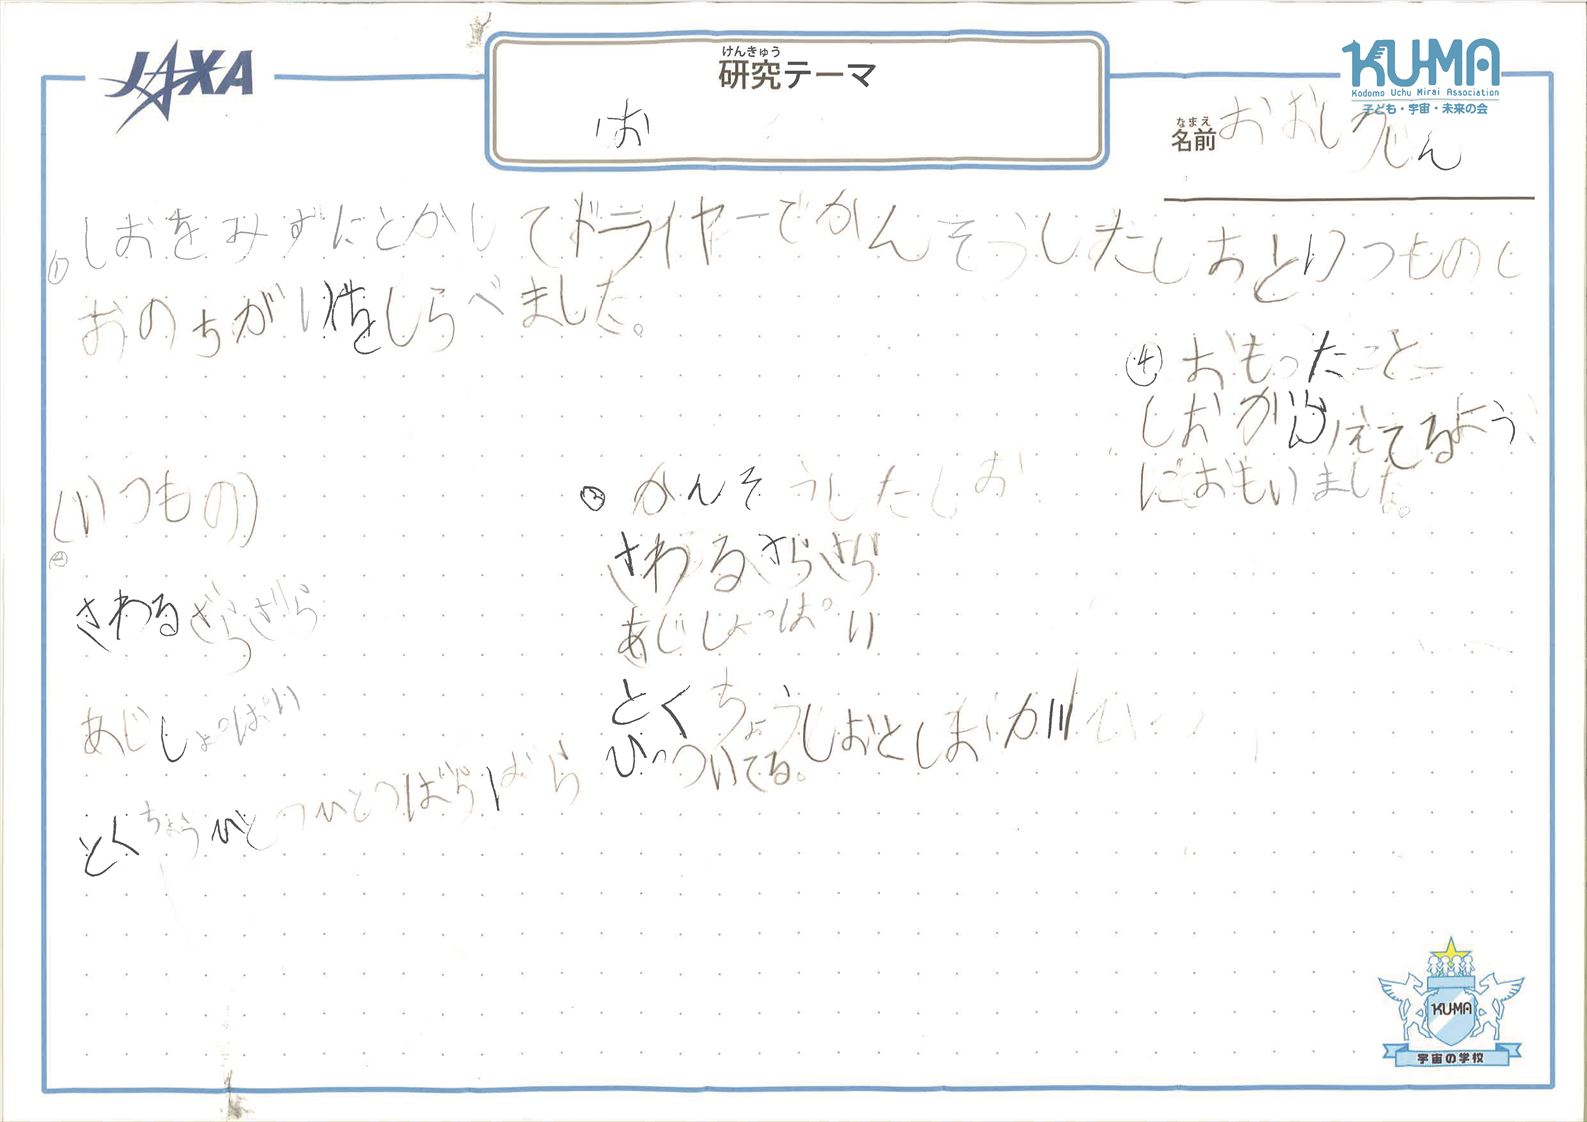 JAXA
けんきゅう
研究テーマ
お
KUMA
Kodomo Uchu Mirai Association
子ども・宇宙・未来の会
なまえ
名前 おおし じん
① しおをみずにとかしてドライヤーでかんそうしたしおといつものし
おのちがいをしらべました。
(いつもの)
②
さわるざらざら
あじしょっぱい
とくちょうひとつひとつばらばら
③ かんそうしたしお
さわるさらさら
あじしょっぱい
とくちょうしおとしおが
ひっついてる。
④ おもったこと
しおが えてるよう
におもいました。
KUMA
宇宙の学校